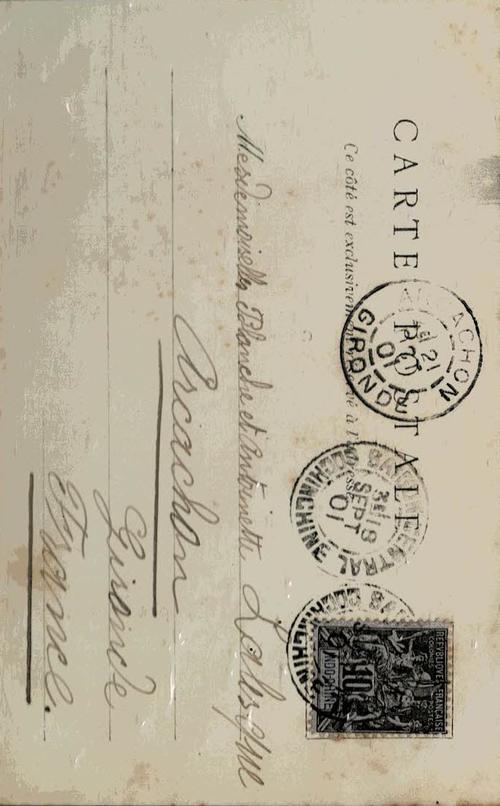 CARTE POSTALE
Ce côté est exclusivement réservé à l'adresse
ARCACHON
21
01
GIRONDE
SAIGON CENTRAL
18
SEPT
01
COCHINCHINE
RÉPUBLIQUE FRANÇAISE
COLONIES POSTES
10
INDO-CHINE
Mesdemoiselles Blanche et Antoinette
Arcachon
Gironde
France.